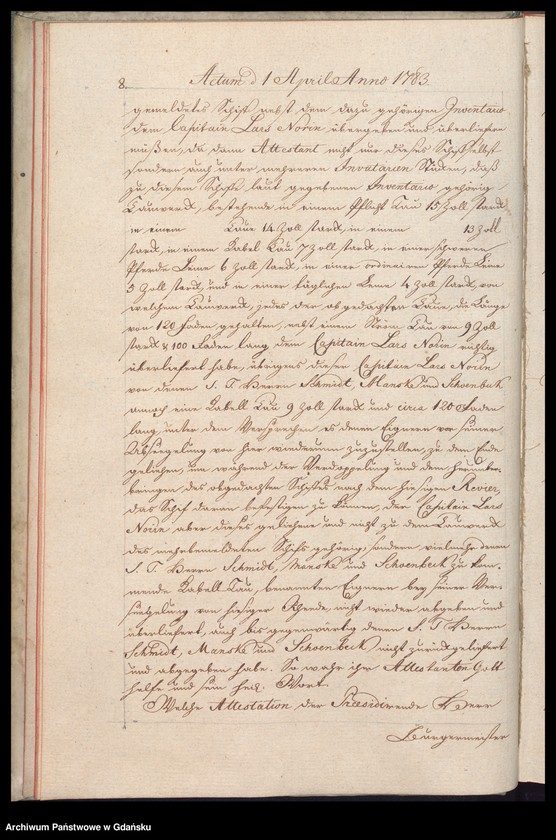 8. Actum d 1 April Anno 1783.
gemeldetes Schiff nebst dem dazu gehörigen Inventario
dem Capitain Lars Norin übergeben und überliefern
müßen, da dann Attestant nicht nur dieses Schiff selbst
sondern auch unter mehreren Inventarien Stücken, daß
zu diesem Schiffe laut gegebenen Inventario gehörig
Tauwerck, bestehende in einem Pflicht Tau 15 Zoll starck
in einem Taue 14 Zoll starck, in einem 13 Zoll
starck, in einem Kabel Tau 7 Zoll starck, in einer schweren
Pferde Leine 6 Zoll starck, in einer ordinairen Pferde Leine
5 Zoll starck, und in einer täglichen Leine 4 Zoll starck, von
welchem Tauwerck, jedes der obgedachten Taue, die Länge
von 120 Faden gehalten, nebst einem Strom Tau von 9 Zoll
starck & 100 Faden lang, dem Capitain Lars Norin richtig
überliefert habe, übrigens dieser Capitain Lars Norin
von denen S. T. Herrn Schmidt, Manske und Schoenbeck
annoch eine Kabell Tau 9 Zoll starck und circa 120 Faden
lang, unter dem Versprechen es denen Eignern vor seiner
Absegelung von hier wiederum zuzustellen, zu dem Ende
geliehen, um während der Verdoppelung und dem
bringen des obgedachten Schiffes nach dem hiesigen Revier,
das Schiff daran befestigen zu können, der Capitain Lars
Norin aber dieses geliehene und nicht zu dem Tauwerck
des mehrbemeldeten Schiffs gehörige, sondern vielmehr denen
S. T. Herrn Schmidt, Manske und Schoenbeck zu kom-
mende Kabell Tau, benannten Eignern bey seiner Ver-
seegelung von hiesiger Rheede, nicht wieder abgeben und
überliefert, auch bis gegenwärtig denen S. T. Herrn
Schmidt, Manske und Schoenbeck nicht zurückgeliefert
und abgegeben habe. So wahr ihm Attestanten Gott
helfe und sein heil. Wort.
Welche Attestation der Præsidirende Herr
Burgermeister
Archiwum Państwowe w Gdańsku